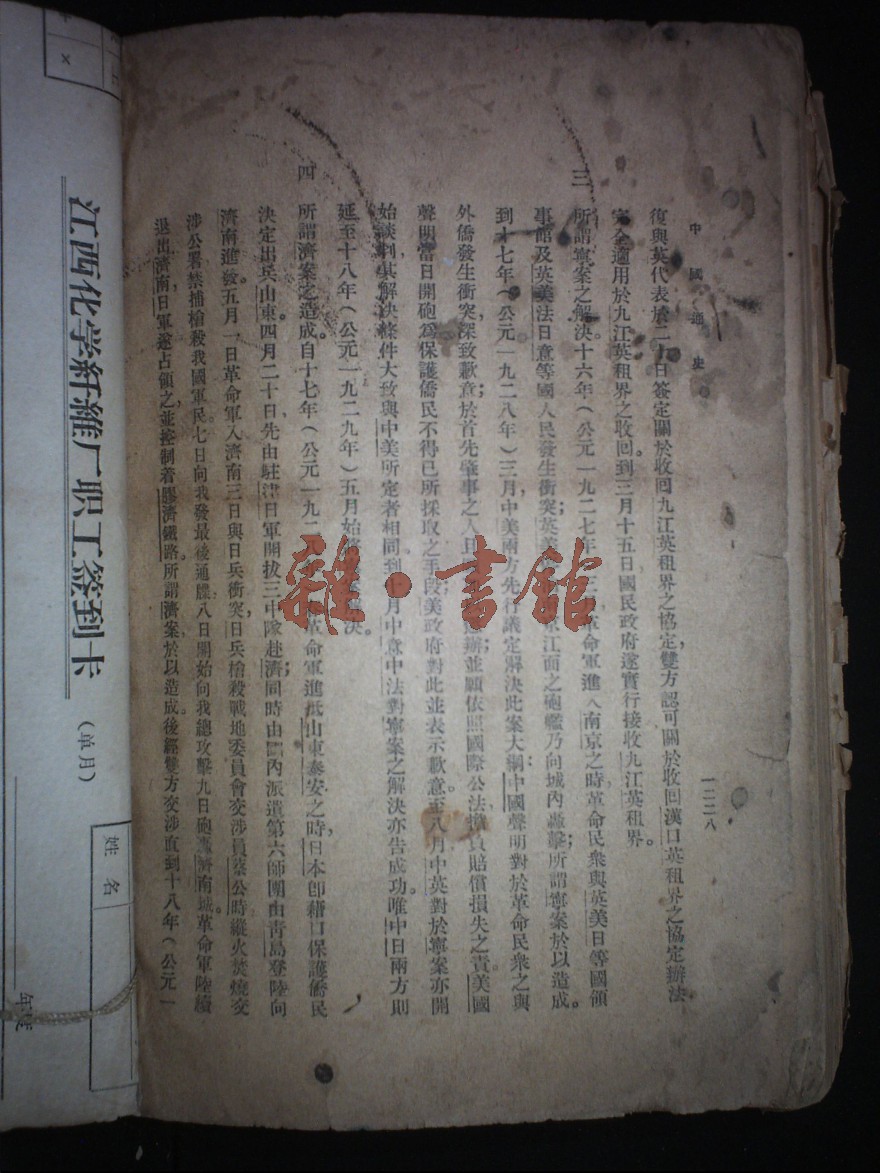 中國通史
一二二八
復與英代表於二十日簽定關於收回九江英租界之協定，雙方認可關於收回漢口英租界之協定辦法
完全適用於九江英租界之收回。到三月十五日國民政府遂實行接收九江英租界。
三 所謂寧案之解決 十六年（公元一九二七年）三月，革命軍進入南京之時革命民衆與英美日等國領
事館及英美法日意等國人民發生衝突；英美江面之砲艦乃向城內轟擊；所謂寧案於以造成。
到十七年（公元一九二八年）三月，中美兩方先行議定解決此案大綱：中國聲明對於革命民衆之與
外僑發生衝突，深致歉意；於首先肇事之人辦並願依照國際公法擔負賠償損失之責；美國
聲明當日開砲爲保護僑民不得已所採取之手段，美政府對此並表示歉意。至八月中英對於寧案亦開
始談判，其解決條件大致與中美所定者相同。到十月中意中法對寧案之解決亦告成功。唯中日兩方則
延至十八年（公元一九二九年）五月始將決。
四 所謂濟案之造成。自十七年（公元一九二八革命軍進抵山東泰安之時，日本卽藉口保護僑民
決定出兵山東。四月二十日先由駐津日軍開拔三中隊赴濟；同時由國內派遣第六師團由靑島登陸向
濟南進發。五月一日革命軍入濟南三日與日兵衝突，日兵槍殺戰地委員會交涉員蔡公時，縱火焚燒交
涉公署，禁捕槍殺我國軍民。七日向我發最後通牒，八日開始向我總攻擊，九日砲轟濟南城。革命軍陸續
退出濟南，日軍遂占領之，並控制着膠濟鐵路。所謂濟案於以造成。後經雙方交涉直到十八年（公元一
雜·書館
江西化学纤维厂职工签到卡
（单月）
姓名
年度